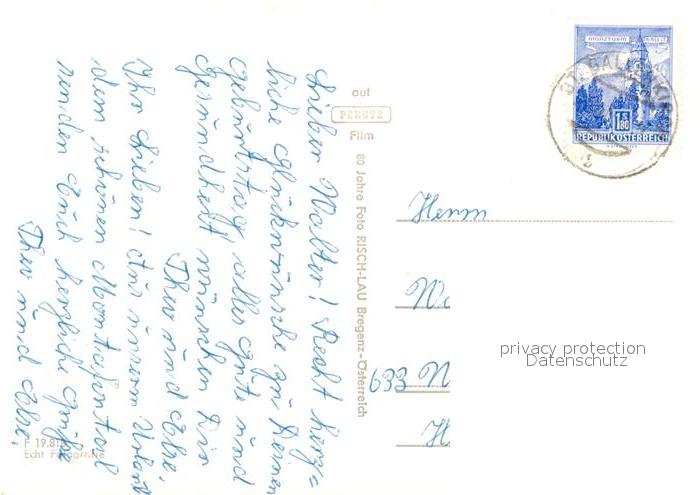 Lieber Walter! Recht herz=
liche Glückwünsche zu Deinem
Geburtstag, alles Gute und
Gesundheit wünschen Dir
Theo und Elke.
Ihr Lieben! Aus unserem Urlaub
dem schönen Montafontal
senden Euch herzliche Grüße
Theo und Elke.
F 19.81
Echt Fotografie
auf
PERUTZ
Film
80 Jahre Foto RISCH-LAU Bregenz-Österreich
MÜNZTURM
HALL
1 S 80
REPUBLIK ÖSTERREICH
ST. GALLENK
Herrn
W
633 W
H
privacy protection
Datenschutz